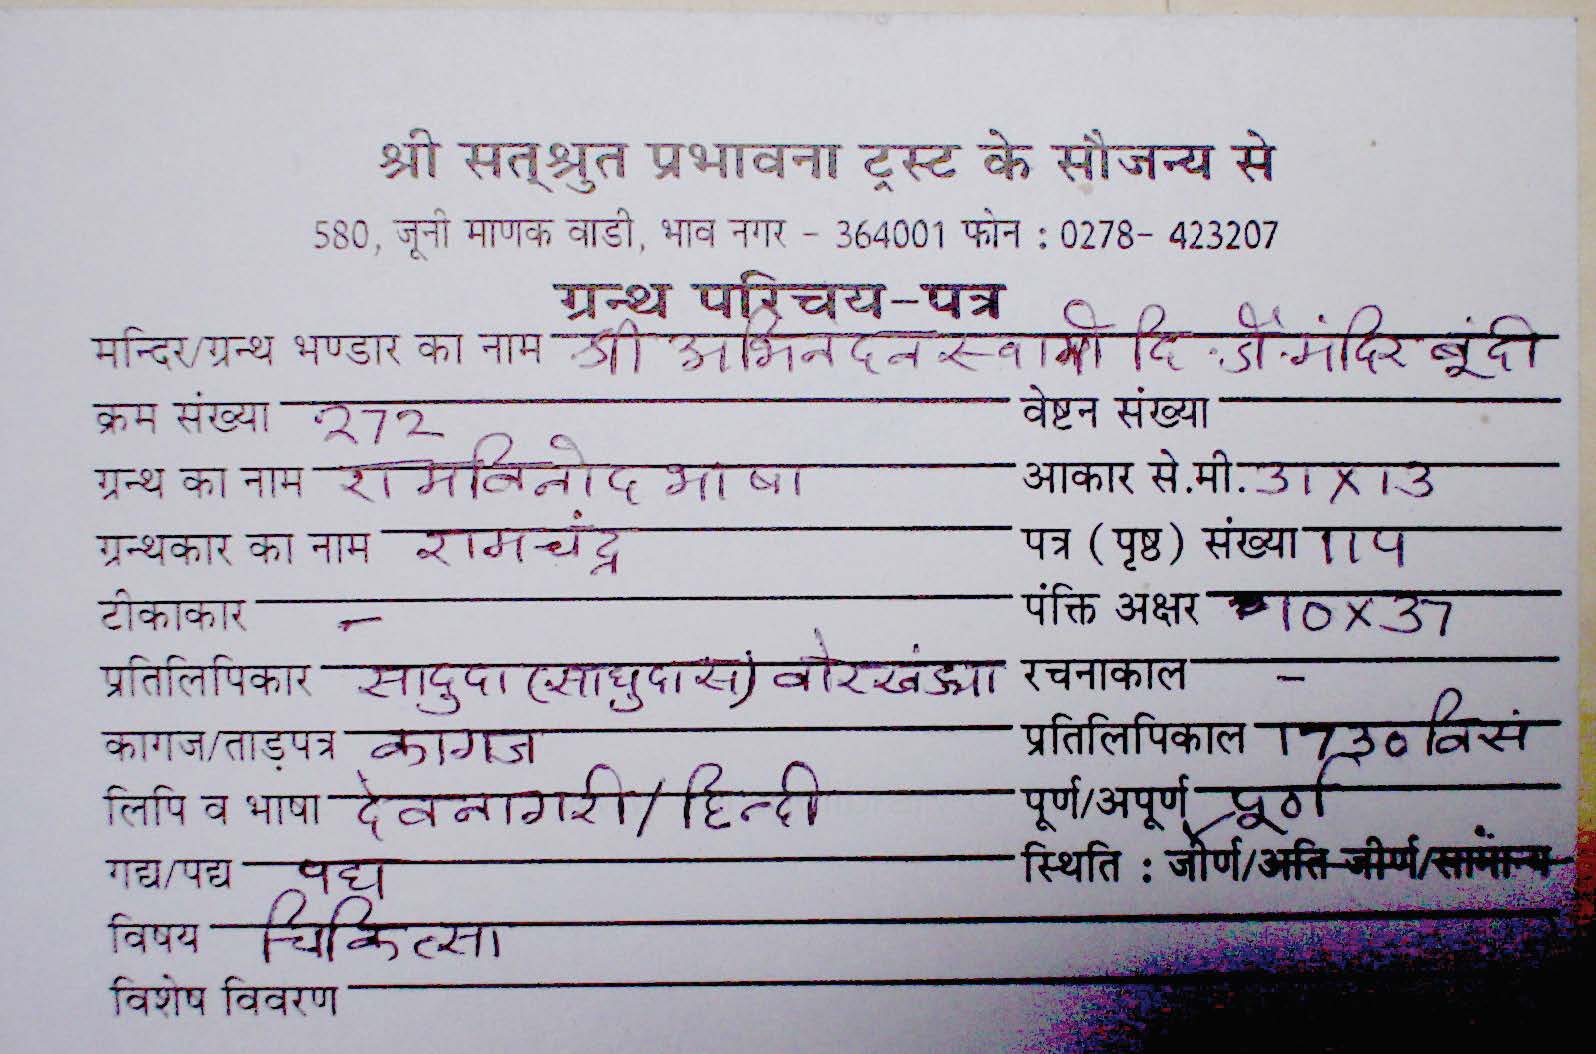 श्री सत्श्रुत प्रभावना ट्रस्ट के सौजन्य से
580, जूनी माणक वाडी, भाव नगर - 364001 फोन : 0278- 423207
ग्रन्थ परिचय-पत्र
मन्दिर/ग्रन्थ भण्डार का नाम श्री अभिनंदन स्वामी दि. जै. मंदिर बूंदी
क्रम संख्या 272 वेष्टन संख्या
ग्रन्थ का नाम रामविनोद भाषा आकार से.मी. 31 X 13
ग्रन्थकार का नाम रामचंद्र पत्र (पृष्ठ) संख्या 114
टीकाकार - पंक्ति अक्षर 10 X 37
प्रतिलिपिकार सादुदा (साधुदास) रचनाकाल -
कागज/ताड़पत्र कागज प्रतिलिपिकाल 1730 विसं
लिपि व भाषा देवनागरी / हिन्दी पूर्ण/अपूर्ण पूर्ण
गद्य/पद्य पद्य स्थिति : जीर्ण/अति जीर्ण/सामान्य
विषय चिकित्सा
विशेष विवरण